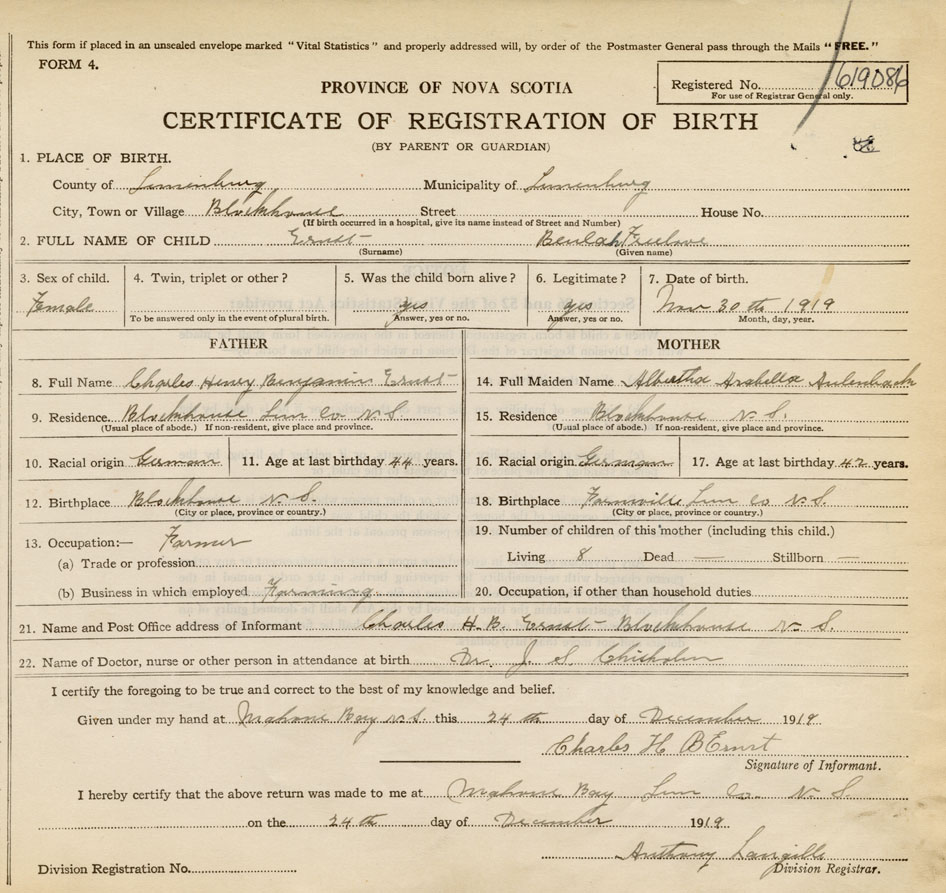 This form if placed in an unsealed envelope marked "Vital Statistics" and properly addressed will, by order of the Postmaster General pass through the Mails "FREE."
FORM 4.
PROVINCE OF NOVA SCOTIA
Registered No. 619086
For use of Registrar General only.
CERTIFICATE OF REGISTRATION OF BIRTH
(BY PARENT OR GUARDIAN)
1. PLACE OF BIRTH.
County of Lunenburg Municipality of Lunenburg
City, Town or Village Blockhouse Street House No.
(If birth occurred in a hospital, give its name instead of Street and Number)
2. FULL NAME OF CHILD Ernst Beulah
(Surname) (Given name)
3. Sex of child. 4. Twin, triplet or other? 5. Was the child born alive? 6. Legitimate? 7. Date of birth.
Female yes yes Nov 30th 1919
To be answered only in the event of plural birth. Answer, yes or no. Answer, yes or no. Month, day, year.
FATHER MOTHER
8. Full Name Charles Henry Benjamin Ernst 14. Full Maiden Name Albertha Arabella Aulenback
9. Residence. Blockhouse Lun Co N.S. 15. Residence Blockhouse N.S.
(Usual place of abode.) If non-resident, give place and province. (Usual place of abode.) If non-resident, give place and province.
10. Racial origin German 11. Age at last birthday 44 years. 16. Racial origin German 17. Age at last birthday 42 years.
12. Birthplace Blockhouse N.S. 18. Birthplace Farmville Lun Co N.S.
(City or place, province or country.) (City or place, province or country.)
13. Occupation:— Farmer 19. Number of children of this mother (including this child.)
(a) Trade or profession Living 8 Dead — Stillborn —
(b) Business in which employed Farming 20. Occupation, if other than household duties
21. Name and Post Office address of Informant Charles H. B. Ernst - Blockhouse N.S.
22. Name of Doctor, nurse or other person in attendance at birth Dr. J. S. Chisholm
I certify the foregoing to be true and correct to the best of my knowledge and belief.
Given under my hand at Mahone Bay N.S. this 24th day of December 1919
Charles H B Ernst
Signature of Informant.
I hereby certify that the above return was made to me at Mahone Bay Lun Co. N.S.
on the 24th day of December 1919
Anthony Langille
Division Registration No. Division Registrar.